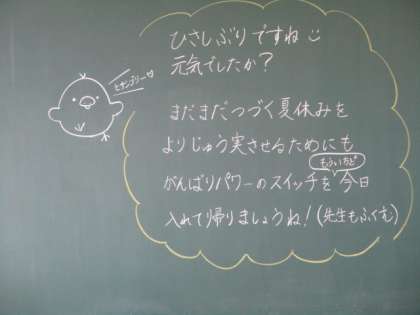 ひさしぶりですね
元気でしたか?
まだまだつづく夏休みを
よりじゅう実させるためにも
もういちど
がんばりパワーのスイッチを今日
入れて帰りましょうね!(先生もふくむ)